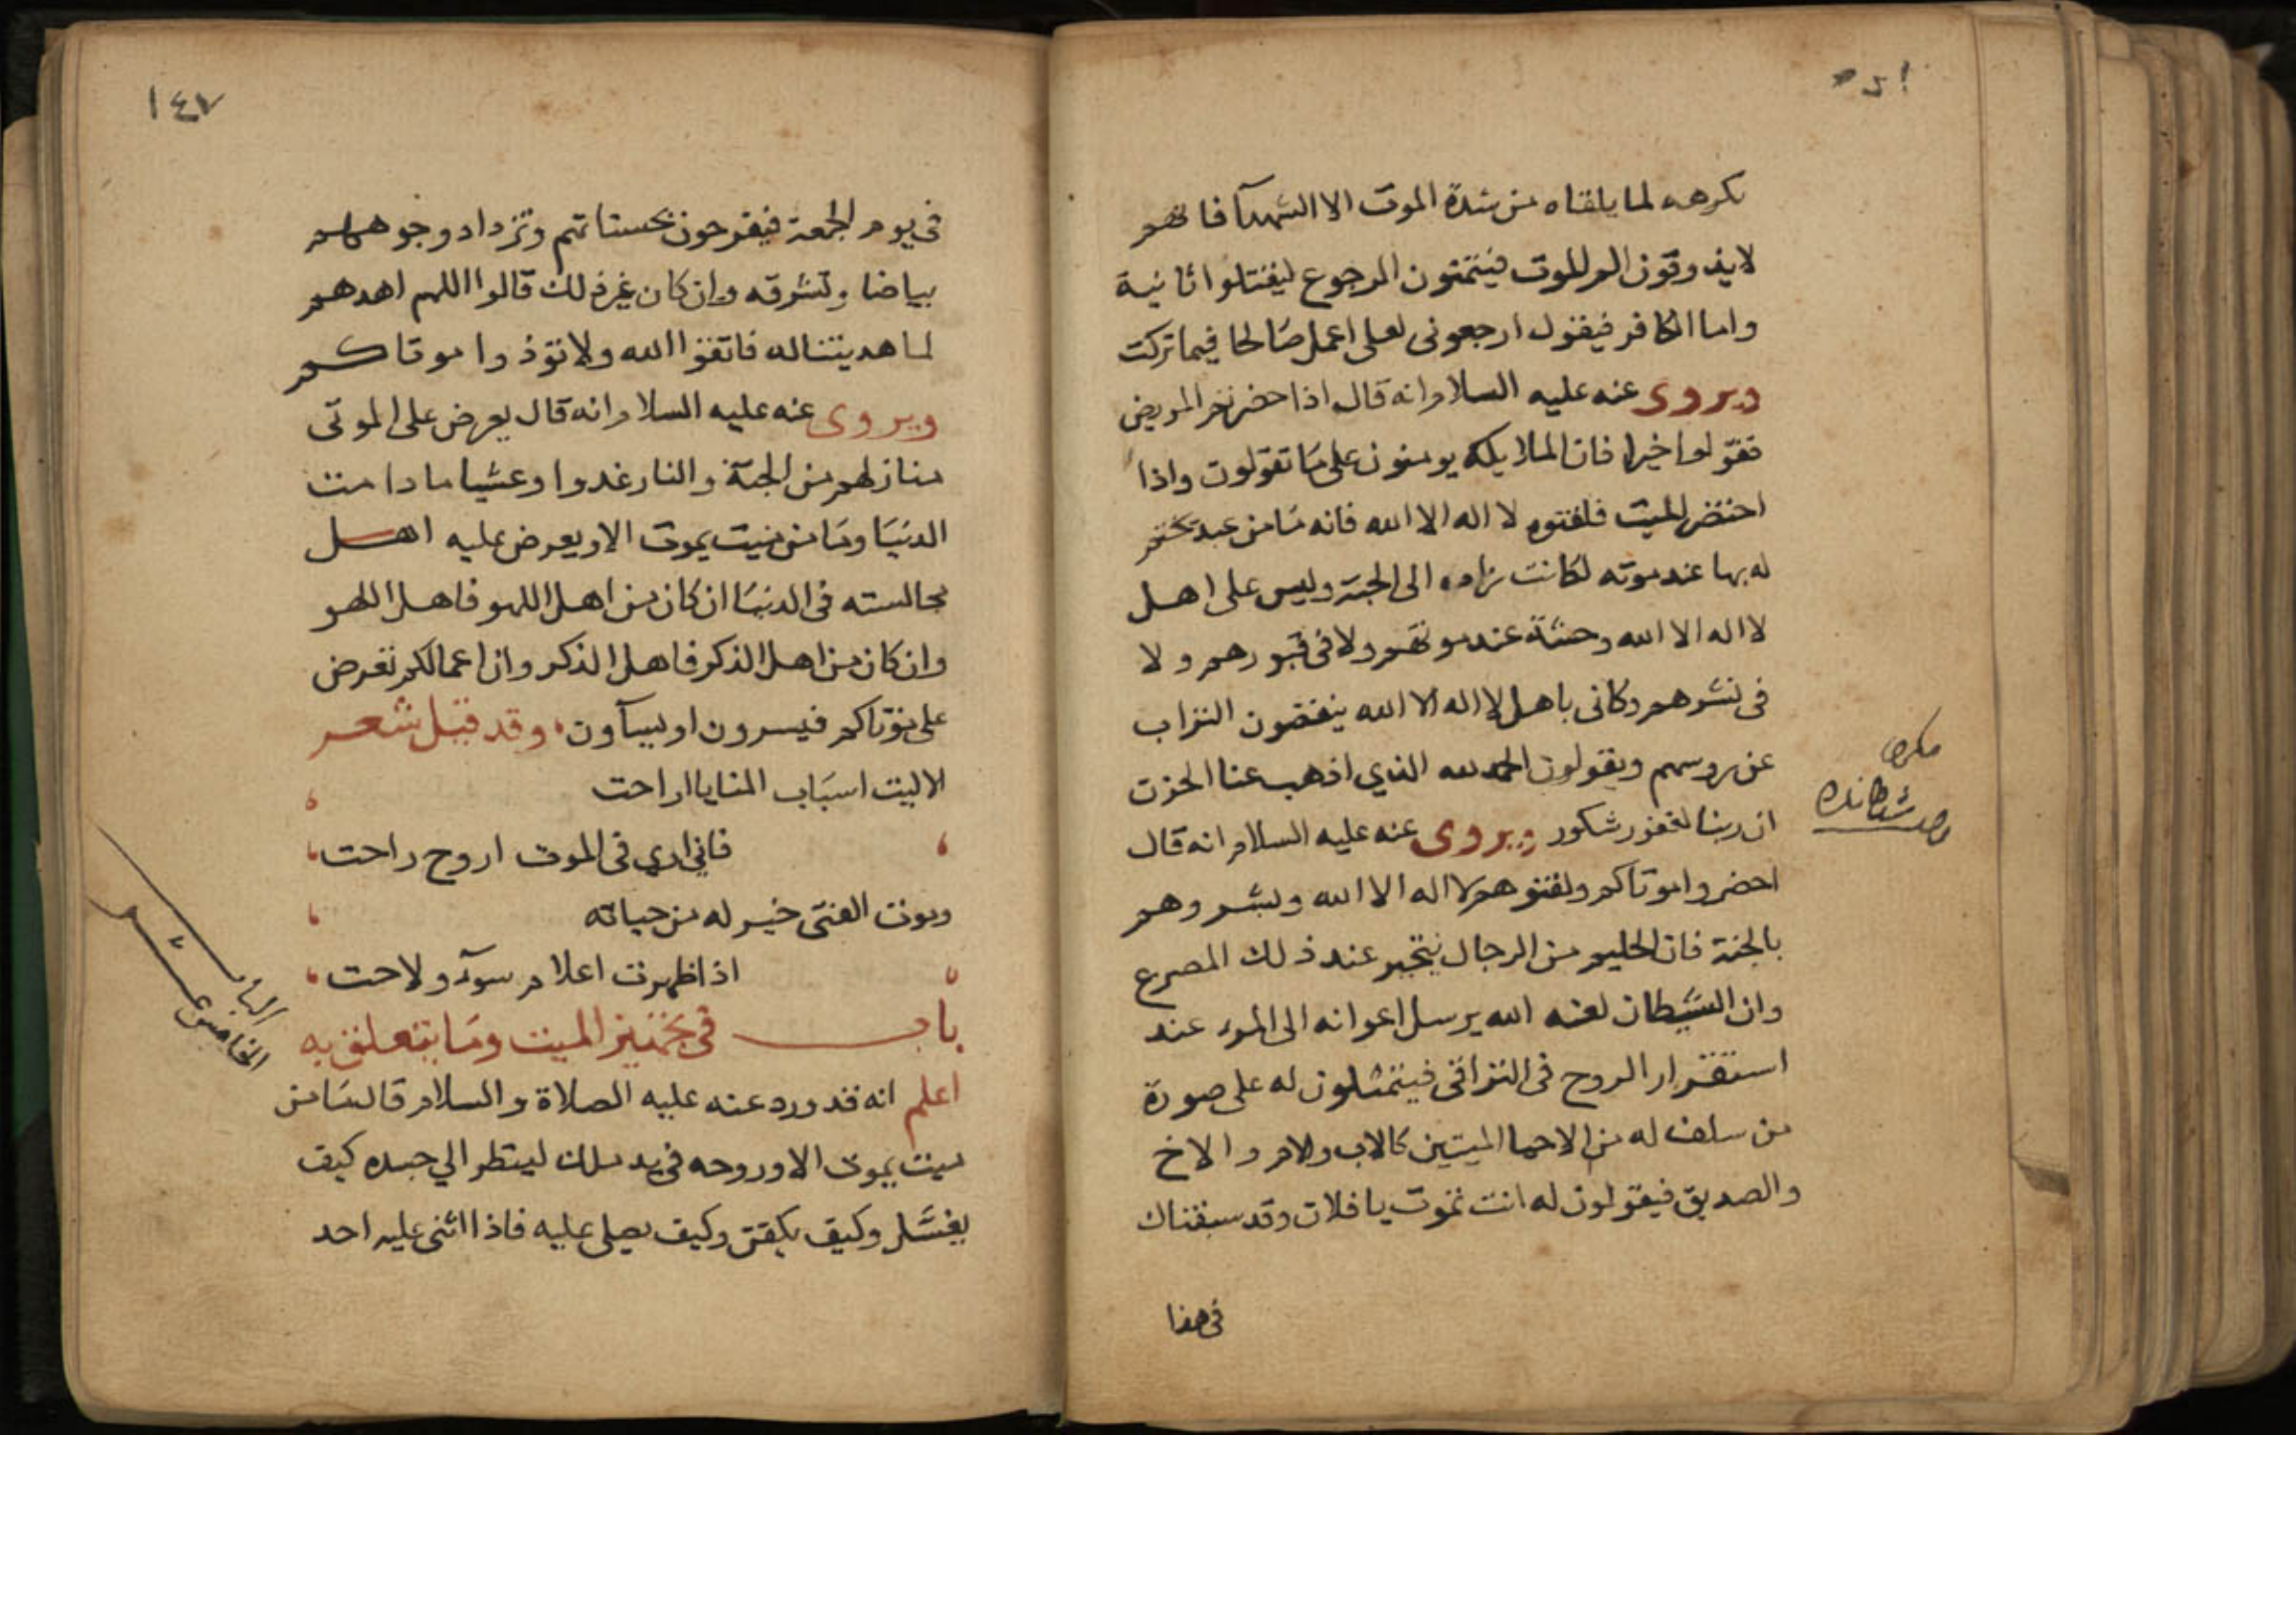 يكرهه لما يلقاه من شدة الموت الا الشهدآ فانهم
لايذوقون الم الموت فيتمنون الرجوع ليقتلوا ثانية
واما الكافر فيقول ارجعونى لعلى اعمل صالحا فيما تركت
ويروى عنه عليه السلام انه قال اذا حضرتم المريض
فقولوا خيرا فان الملايكه يومنون على ما تقولون واذا
احتضر الميت فلقنوه لا اله الا الله فانه ما من عبد يختم
له بها عند موته لكانت زاده الى الجنة وليس على اهل
لا اله الا الله وحشة عند موتهم ولا فى قبورهم ولا
فى نشرهم وكانى باهل لا اله الا الله ينفضون التراب
عن روسهم ويقولون الحمد لله الذي اذهب عنا الحزن
ان ربنا لغفور شكور ويروى عنه عليه السلام انه قال
احضروا موتاكم ولقنوهم لا اله الا الله وبشروهم
بالجنة فان الحليم من الرجال يتحير عند ذلك المصرع
وان الشيطان لعنه الله يرسل اعوانه الى المرء عند
استقرار الروح فى التراقى فيتمثلون له على صورة
من سلف له من الاحبا الميتين كالاب والام والاخ
والصديق فيقولون له انت تموت يا فلان وقد سبقناك
فى هذا
١٤٧
فى يوم الجمعة فيفرحون بحسناتهم وتزداد وجوههم
بياضا وتشرقه وان كان غير ذلك قالوا اللهم اهدهم
لما هديتنا له فاتقوا الله ولا توذوا موتاكم
ويروى عنه عليه السلام انه قال يعرض على الموتى
منازلهم من الجنة والنار غدوا وعشيا ما دامت
الدنيا وما من ميت يموت الا ويعرض عليه اهل
مجالسته فى الدنيا ان كان من اهل اللهو فاهل اللهو
وان كان من اهل الذكر فاهل الذكر وان اعمالكم تعرض
على موتاكم فيسرون او يسآون وقد قيل شعر
الا ليت اسباب المنايا اراحت
فاني اري فى الموت اروح راحت
وموت الفتى خير له من حياته
اذا ظهرت اعلام سوء ولاحت
باب فى تجهيز الميت وما يتعلق به
الباب
الخامس عشر
اعلم انه قد ورد عنه عليه الصلاة والسلام قال ما من
ميت يموت الا وروحه فى يد ملك لينظر الي جسده كيف
يغسل وكيف يكفن وكيف يصلى عليه فاذا اثنى عليه احد